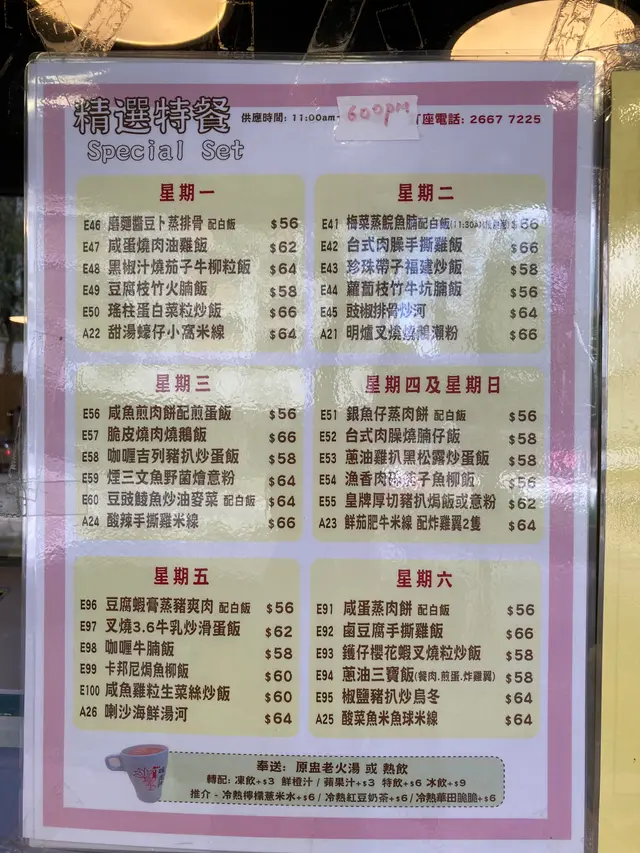 精選特餐 供應時間: 11:00am- 600pm 訂座電話: 2667 7225
Special Set
星期一
E46 磨麵醬豆卜蒸排骨 配白飯 $56
E47 咸蛋燒肉油雞飯 $62
E48 黑椒汁燒茄子牛柳粒飯 $64
E49 豆腐枝竹火腩飯 $58
E50 瑤柱蛋白菜粒炒飯 $66
A22 甜湯蠔仔小窩米線 $64
星期二
E41 梅菜蒸鯇魚腩配白飯 $66
E42 台式肉臊手撕雞飯 $66
E43 珍珠帶子福建炒飯 $58
E44 蘿蔔枝竹牛坑腩飯 $56
E45 豉椒排骨炒河 $64
A21 明爐叉燒燒鵝瀨粉 $66
星期三
E56 咸魚煎肉餅配煎蛋飯 $56
E57 脆皮燒肉燒鵝飯 $66
E58 咖喱吉列豬扒炒蛋飯 $58
E59 煙三文魚野菌燴意粉 $64
E60 豆豉鯪魚炒油麥菜 配白飯 $64
A24 酸辣手撕雞米線 $66
星期四及星期日
E51 銀魚仔蒸肉餅 配白飯 $56
E52 台式肉臊燒腩仔飯 $58
E53 蔥油雞扒黑松露炒蛋飯 $58
E54 漁香肉碎茄子魚柳飯 $56
E55 皇牌厚切豬扒焗飯或意粉 $62
A23 鮮茄肥牛米線 配炸雞翼2隻 $64
星期五
E96 豆腐蝦膏蒸豬爽肉 配白飯 $56
E97 叉燒3.6牛乳炒滑蛋飯 $62
E98 咖喱牛腩飯 $58
E99 卡邦尼焗魚柳飯 $60
E100 咸魚雞粒生菜絲炒飯 $60
A26 喇沙海鮮湯河 $64
星期六
E91 咸蛋蒸肉餅 配白飯 $56
E92 鹵豆腐手撕雞飯 $66
E93 鑊仔櫻花蝦叉燒粒炒飯 $58
E94 蔥油三寶飯(餐肉.煎蛋.炸雞翼) $58
E95 椒鹽豬扒炒烏冬 $64
A25 酸菜魚米魚球米線 $64
奉送: 原盅老火湯 或 熱飲
轉配: 凍飲+$3 鮮橙汁/蘋果汁+$3 特飲+$6 冰飲+$9
推介 - 冷熱檸檬薏米水+$6/冷熱紅豆奶茶+$6/冷熱華田脆脆+$6